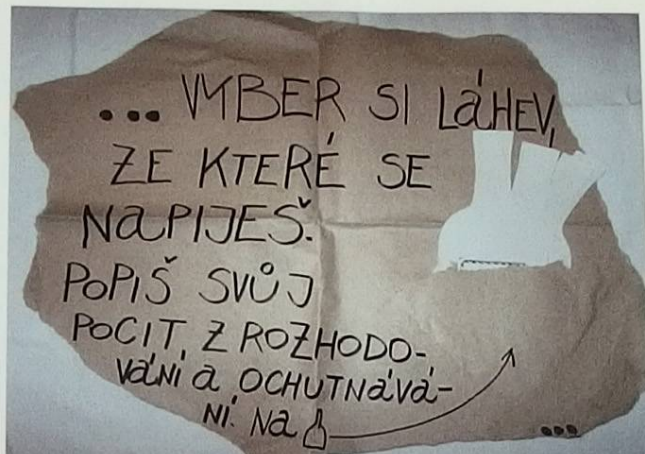 ... VYBER SI LáHEV,
ZE KTERÉ SE
NaPIJEŠ.
POPIŠ SVŮJ
POCIT, Z ROZHODO-
VáNí a OCHUTNáVá-
Ní. Na
...